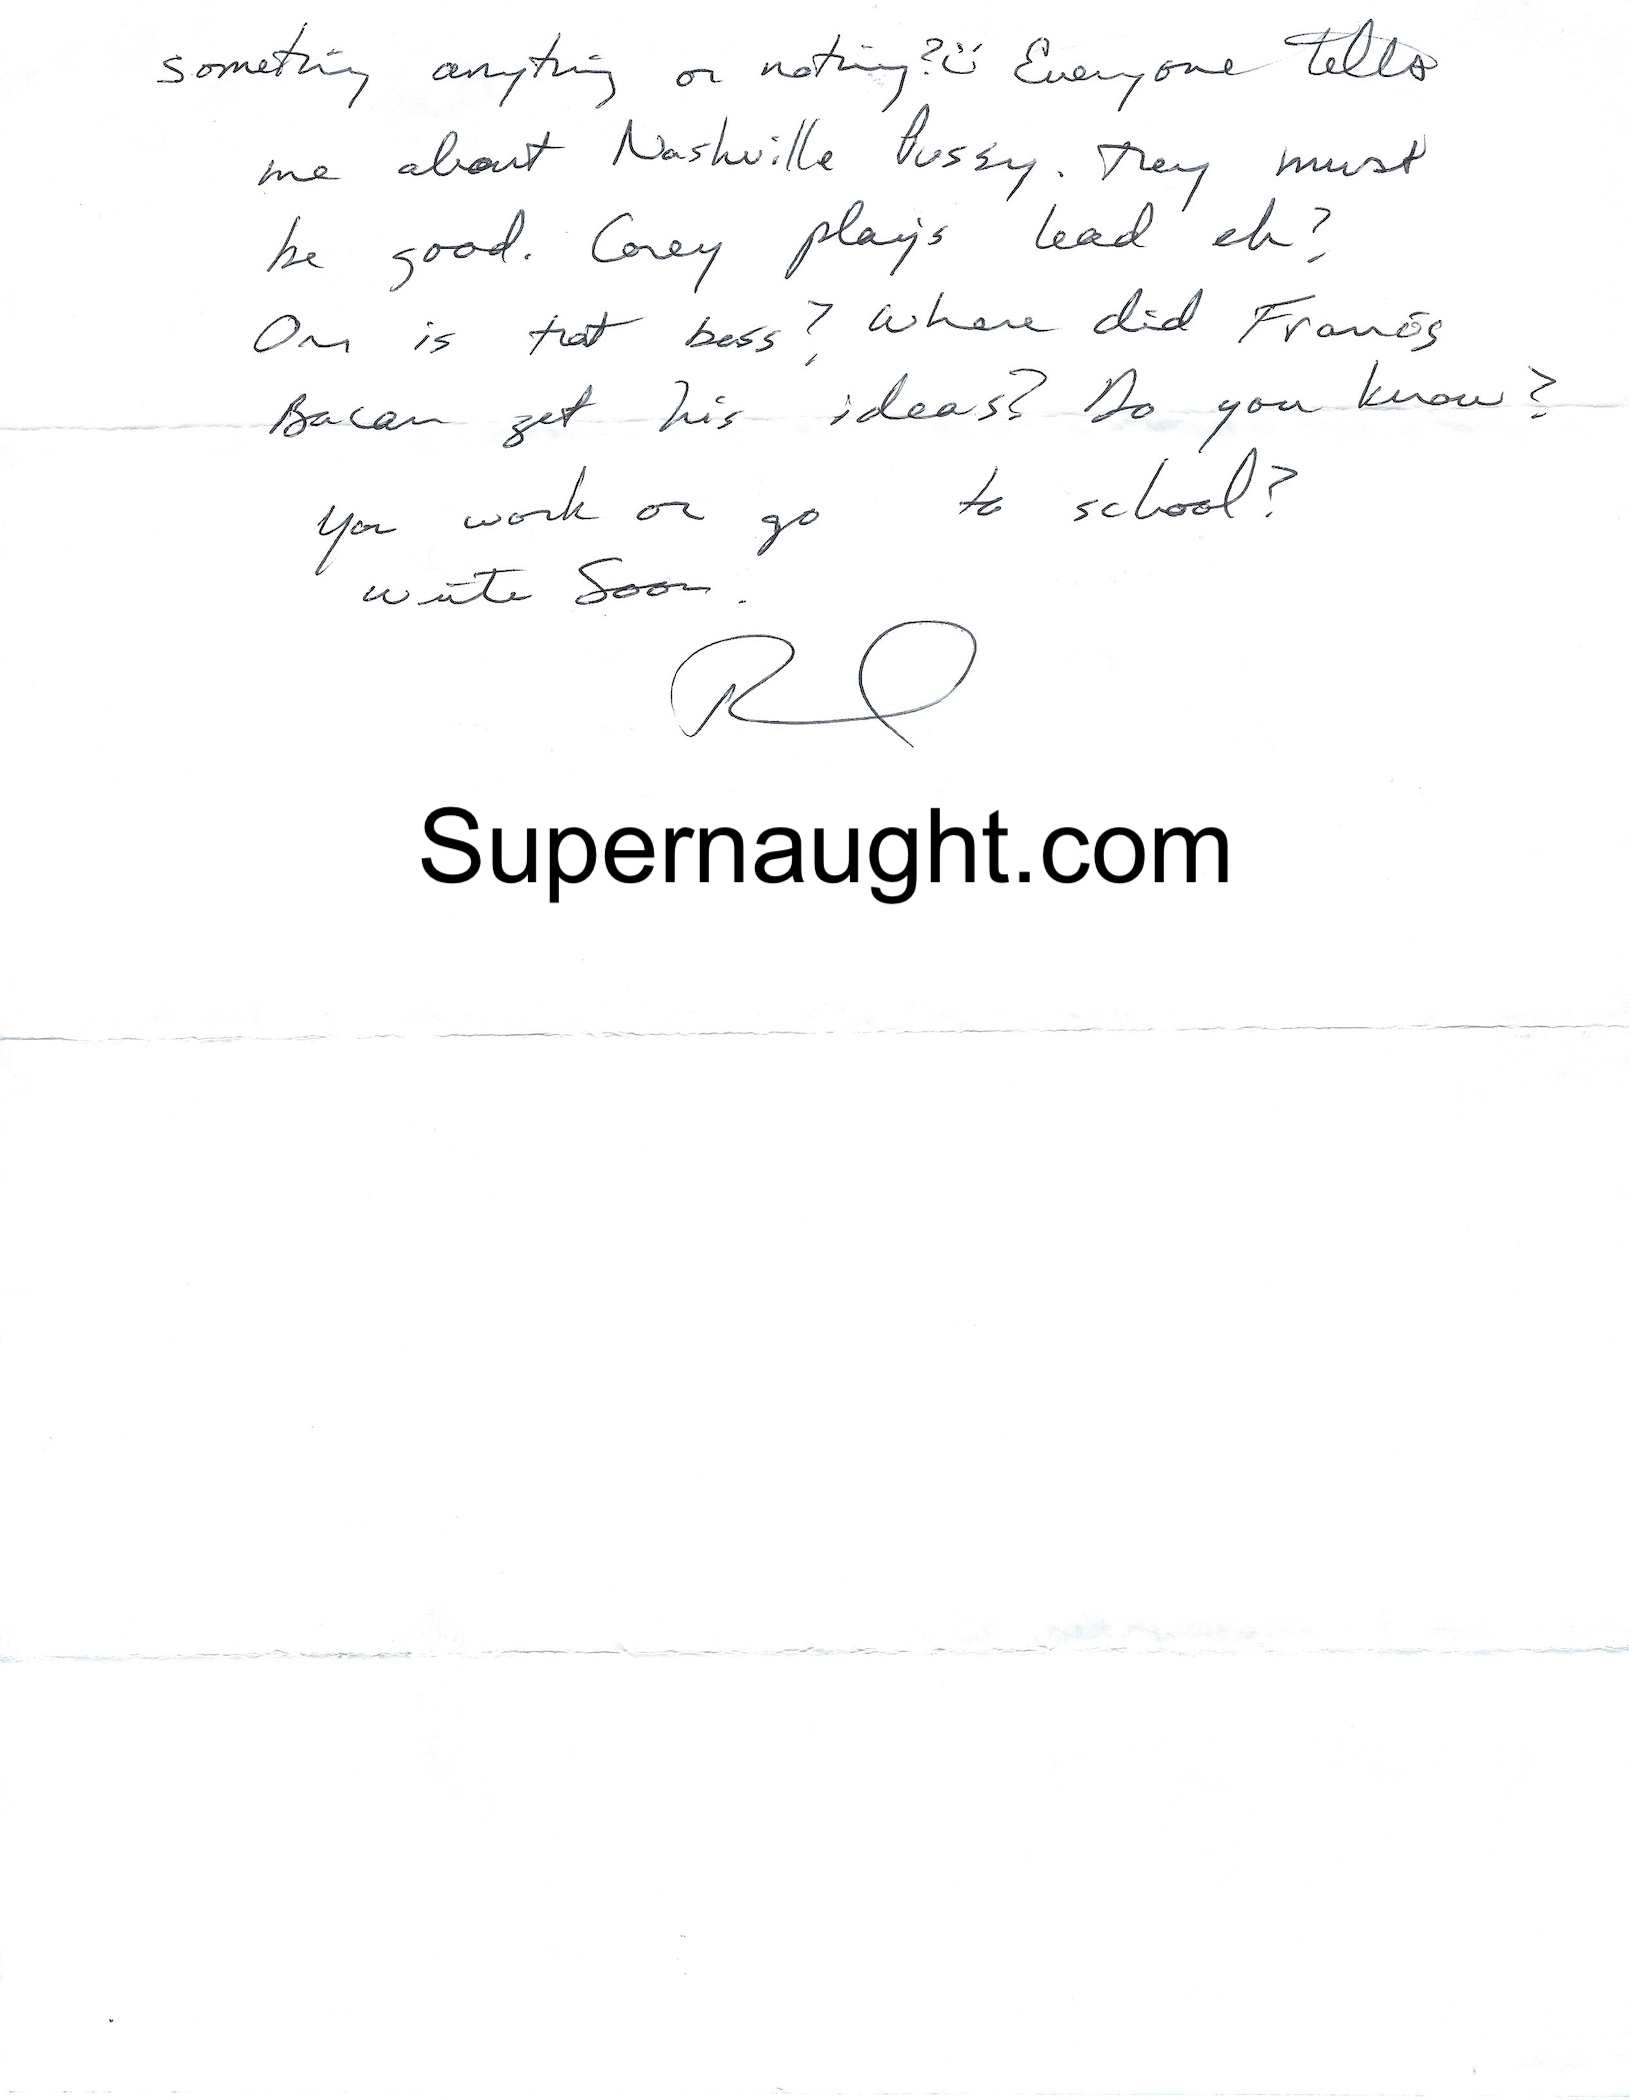 something anything or nothing? Everyone tells
me about Nashville Pussy. They must
be good. Corey plays lead eh?
Or is that bass? Where did Francis
Bacon get his ideas? Do you know?
You work or go to school?
Write Soon.
Supernaught.com